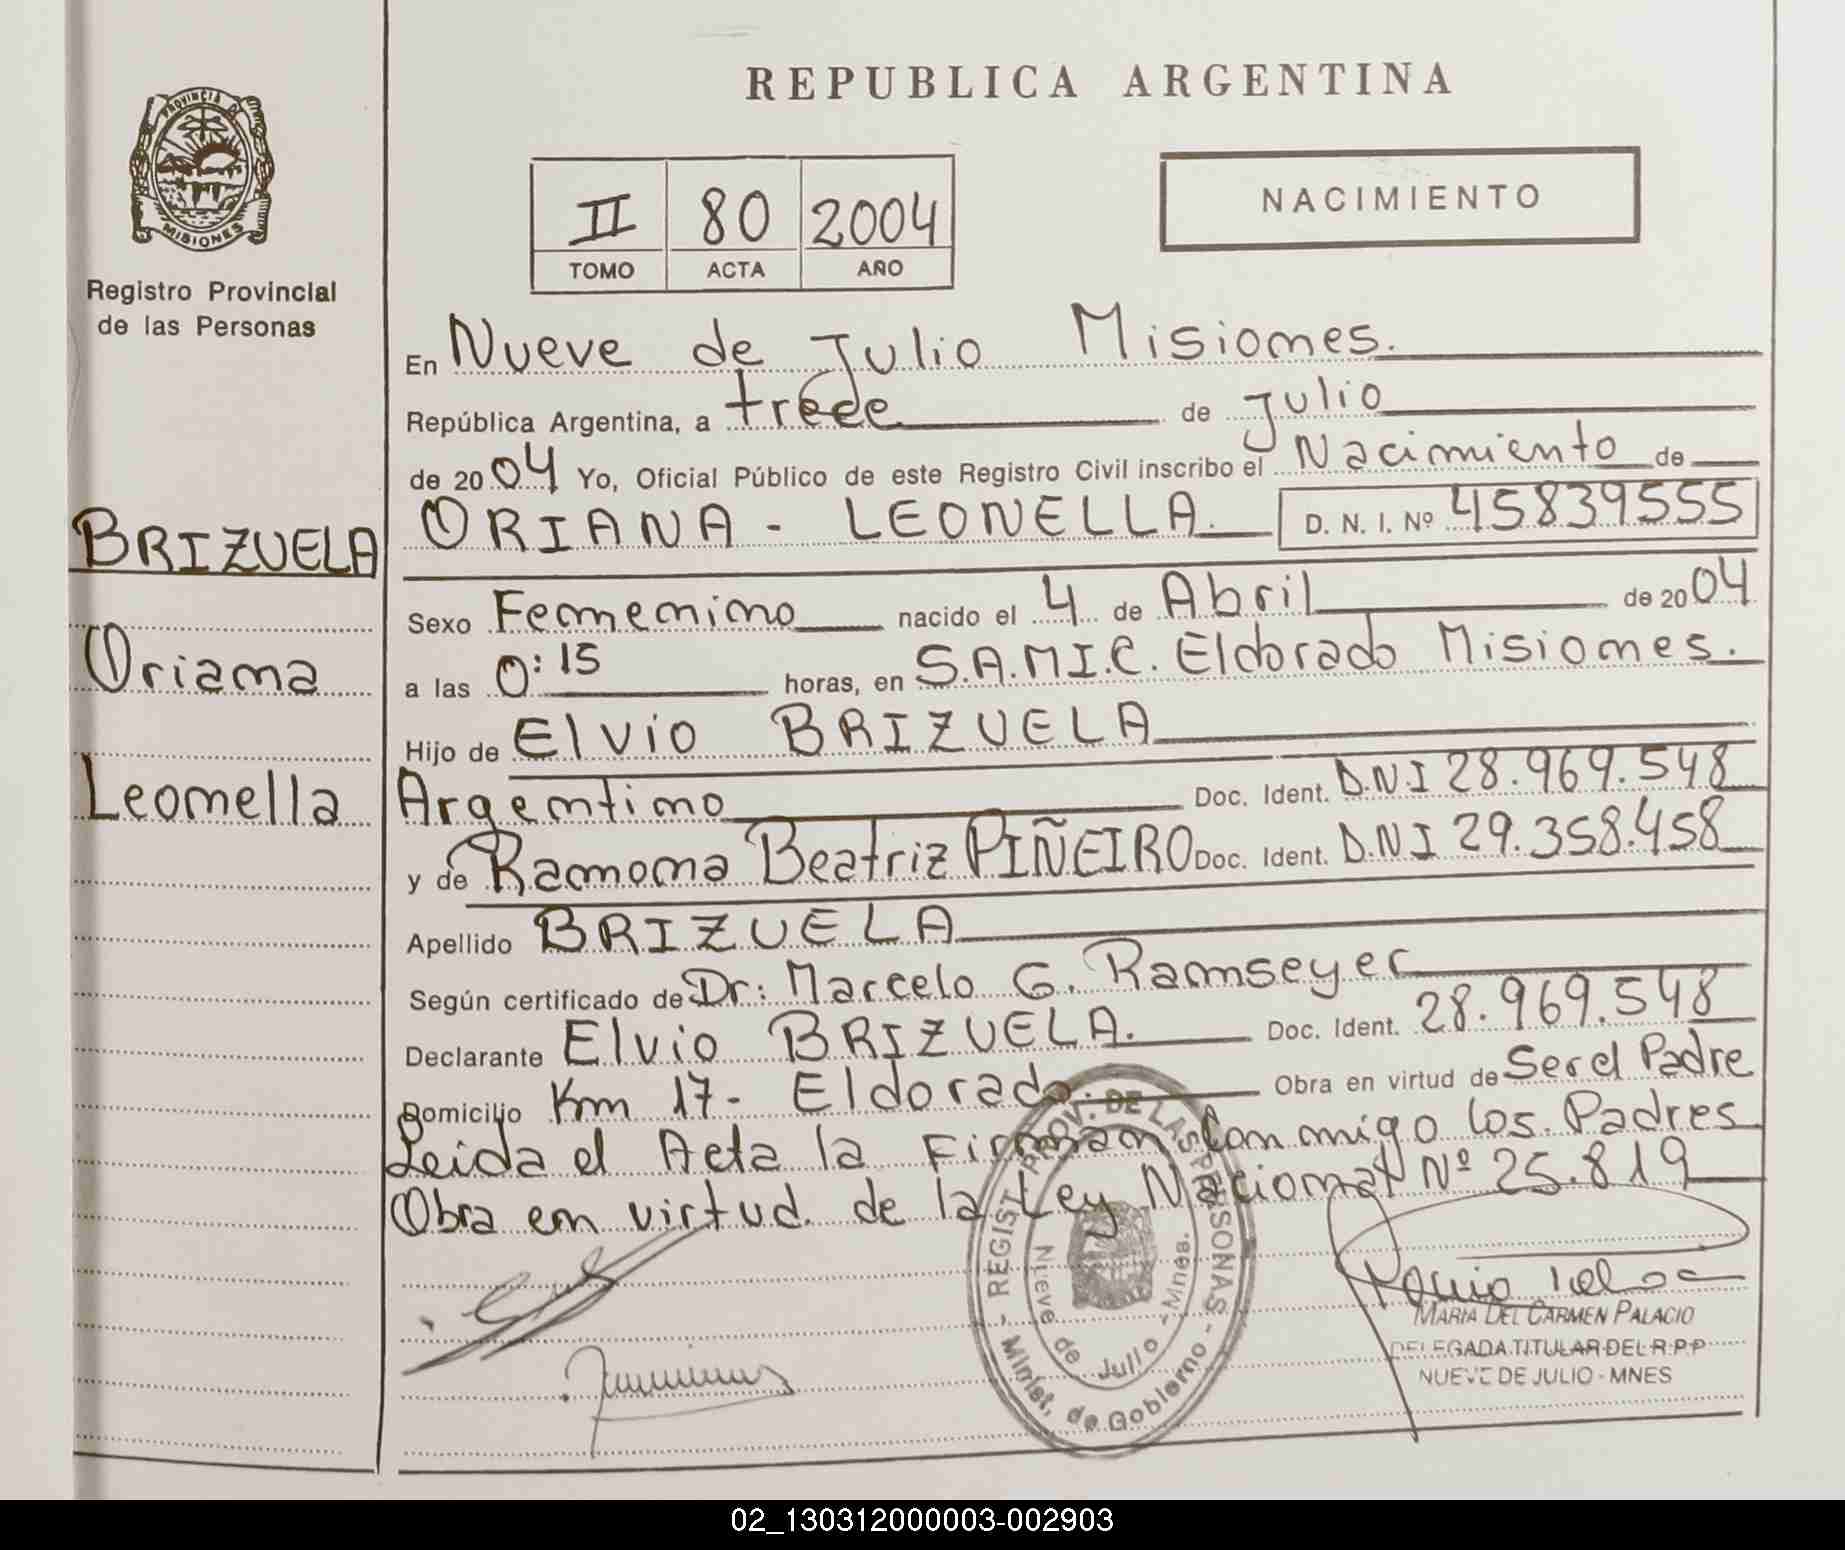 PROVINCIA DE
MISIONES
Registro Provincial
de las Personas
BRIZUELA
Oriana
Leonella
REPUBLICA ARGENTINA
II 80 2004
TOMO ACTA AÑO
NACIMIENTO
En Nueve de Julio Misiones.
República Argentina, a trece de Julio
de 2004 Yo, Oficial Público de este Registro Civil inscribo el Nacimiento de
ORIANA - LEONELLA. D. N. I. Nº 45839555
Sexo Femenino nacido el 4 de Abril de 2004
a las 0:15 horas, en S.A.M.I.C. Eldorado Misiones.
Hijo de Elvio BRIZUELA
Argentino Doc. Ident. D.N.I 28.969.548
y de Ramona Beatriz PIÑEIRO Doc. Ident. D.N.I 29.358.458
Apellido BRIZUELA
Según certificado de Dr: Marcelo G. Ramseyer
Declarante Elvio BRIZUELA. Doc. Ident. 28.969.548
Domicilio Km 17- Eldorado. Obra en virtud de Ser el Padre
Leida el Acta la Firman Conmigo los. Padres
Obra en virtud. de la Ley Nacional Nº 25.819
- REGIST. PROV. DE LAS PERSONAS -
Minist. de Gobierno
Nueve de Julio - Mnes.
MARIA DEL CARMEN PALACIO
DELEGADA TITULAR DEL R.P.P
NUEVE DE JULIO - MNES
02_130312000003-002903